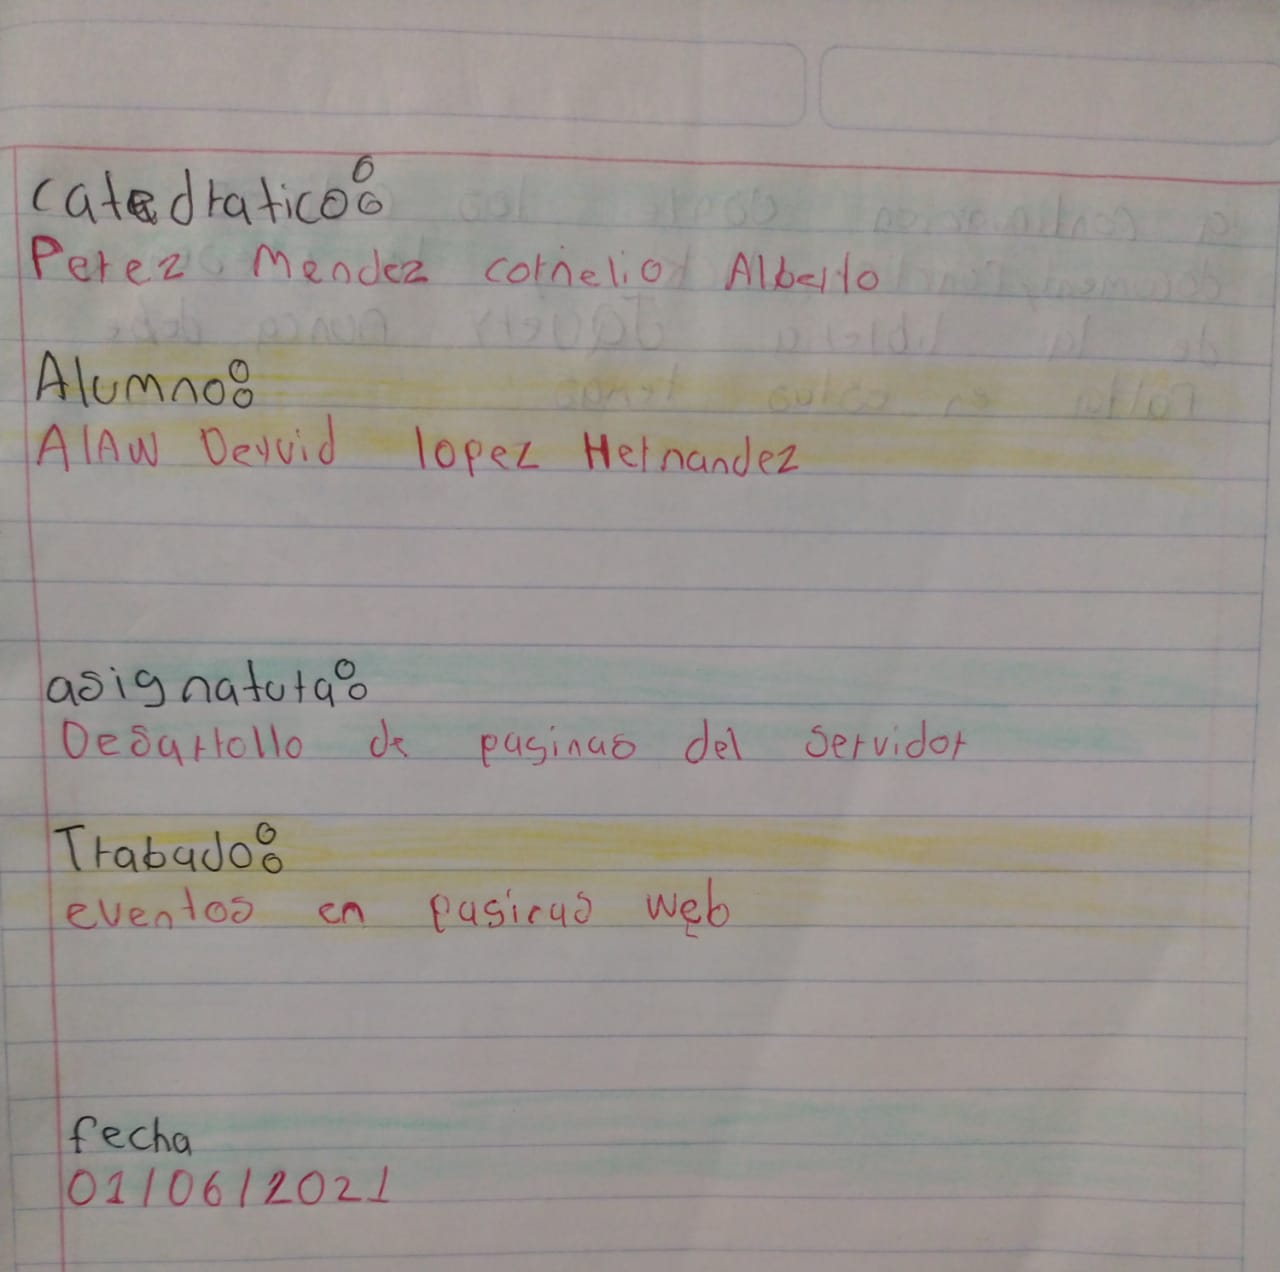 catedratico:
Perez Mendez cornelio Alberto
Alumno:
AlAW Deyvid lopez Hernandez
asignatura:
Desarrollo de paginas del servidor
Trabado:
eventos en pasicas web
fecha
01/06/2021